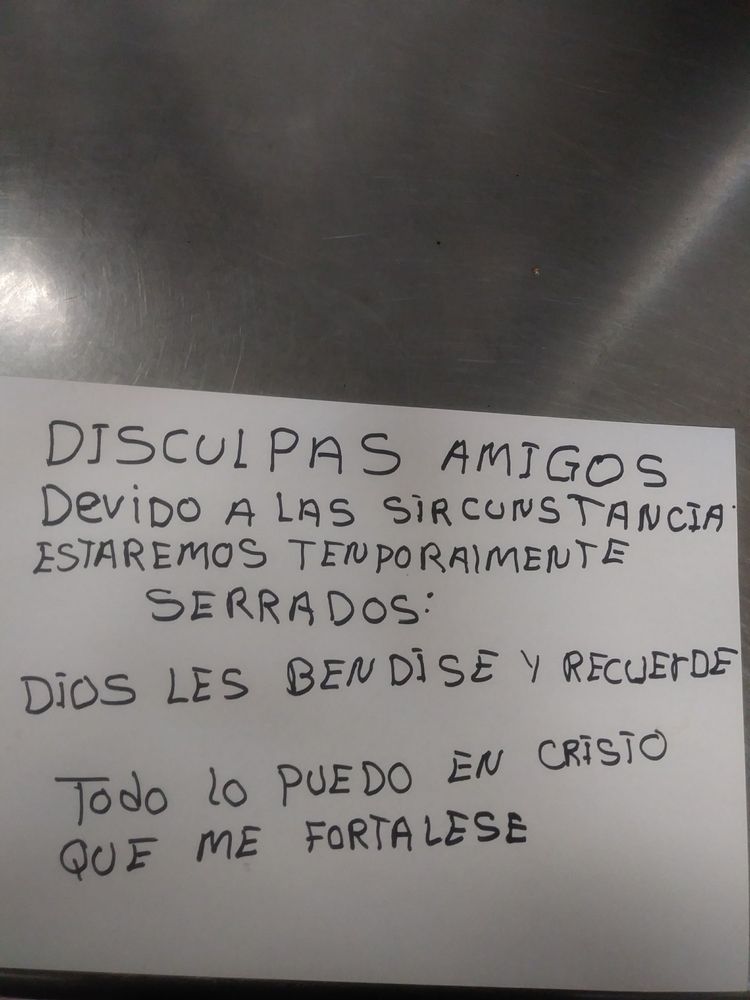 DISCULPAS AMIGOS
DeviDO A LAS SiRCUNSTANCIA
ESTAREMOS TENPORAlMENTE
SERRADOS:
DiOS LES BENDiSE Y RECUErDE
Todo lO PUEDO EN CRISTO
QUE ME FORTALESE